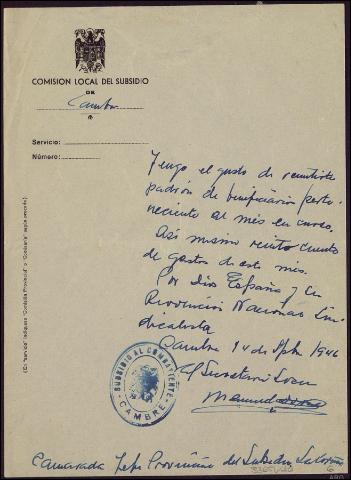 COMISION LOCAL DEL SUBSIDIO
DE
Cambre
Servicio:
Número:
(En "servicio" indíquese "Comisión Provincial" o "Comisaría" según proceda)
Tengo el gusto de remitirle
padrón de beneficiarios perte-
neciente al mes en curso.
Asi mismo remito cuenta
de gastos de este mes.
Por Dios España y su
Revolución Nacional Sin-
dicalista
Cambre 14 de Sptbre 1946
El Secretario Local
Manuel
SUBSIDIO AL COMBATIENTE
CAMBRE
Camarada Jefe Provincial del Subsidio La Coruña